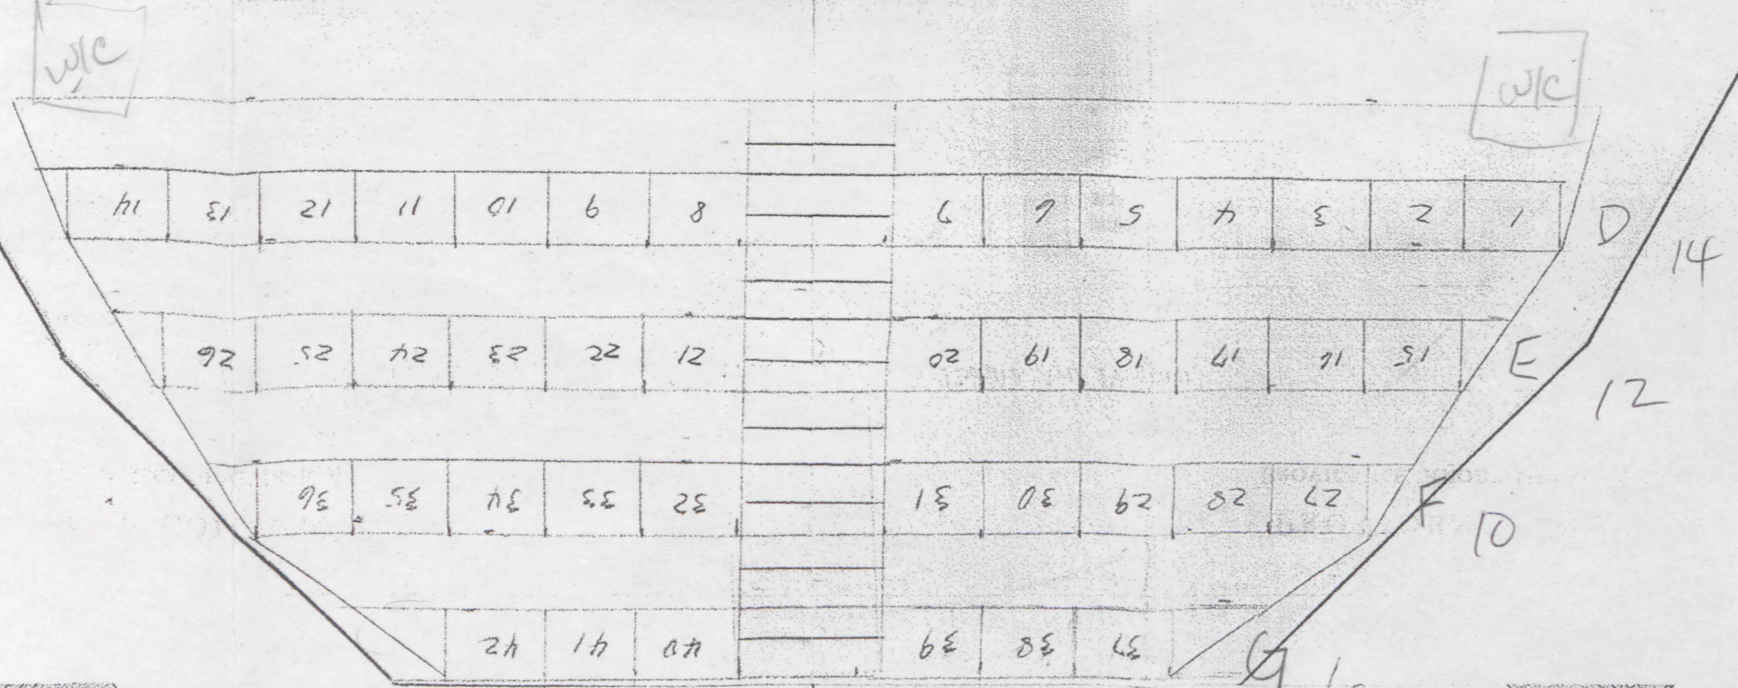 W/C W/C
14 13 12 11 10 9 8 7 6 5 4 3 2 1 D
14
26 25 24 23 22 21 20 19 18 17 16 15 E
12
36 35 34 33 32 31 30 29 28 27 F
10
42 41 40 39 38 37 G